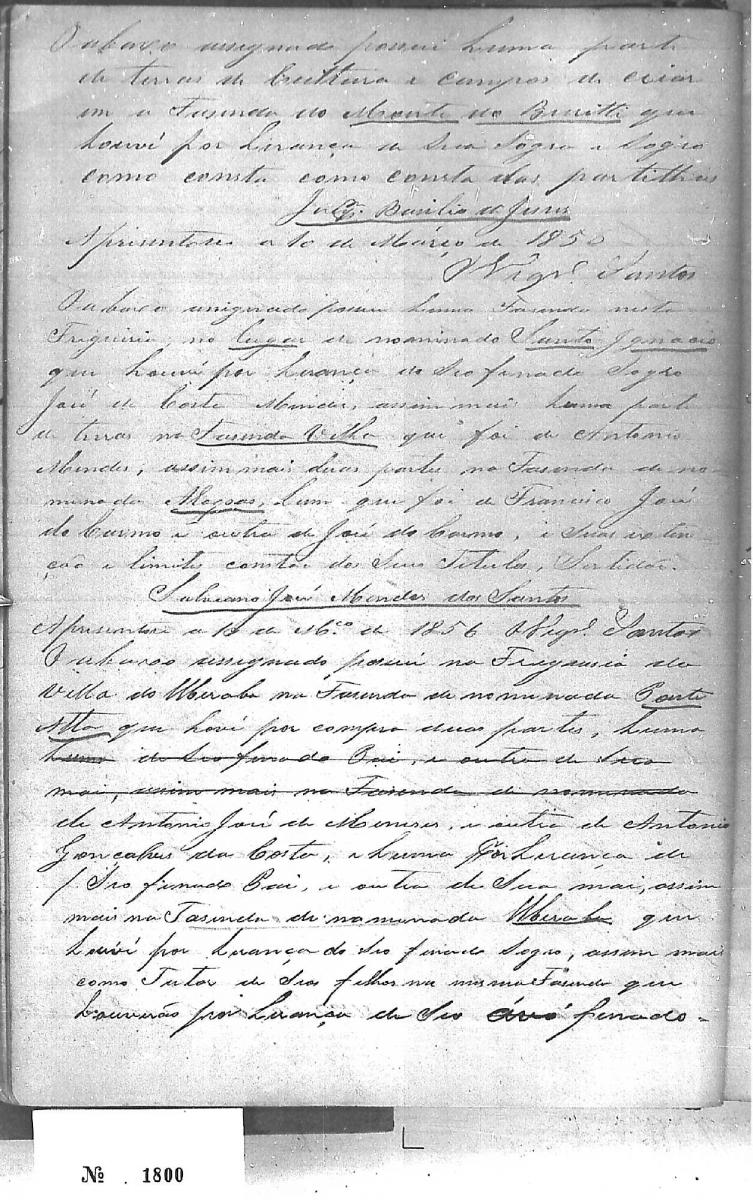 O abaxo assignado possui huma parte
de terras de Cultura e campos de criar
em a Fasenda do Monte do Buritti que
houvi por herança de Seu Sogro e Sogro
como consta como consta das partilhas
Basilio de Jesus
Apresentou a 10 de Março de 185
Vigr.º Santos
O abaxo assignado possui huma Fasenda nesta
Freguisia, no lugar de nominado Santo Ignacio
que houvi por herança do Seo finado Sogro
José da Costa Mendes, assim mais huma parte
de terras na Fasenda Velha que foi de Antonio
Mendes, assim mais duas partes na Fasenda de no-
minada Alagoas, hum que foi de Francisco José
do Carmo e outra de José do Carmo, e suas exten
ção e limites constão dos Seus Titulos, Sertidão.
José Mendes dos Santos
Apresentou a 10 de M.ço de 1856 O Vigr.º Santos
O abaxo assignado possui na Freguisia da
Villa do Uberaba na Fasenda de nominada Ponte
Alta que hovi por compra duas partes, huma
huma do Seo finado Pai, e outra de Sua
mai, assim mais na Fasenda de nominada
de Antonio José de Meneses, e outra de Antonio
Gonçalves da Costa, e huma por herança de
Seo finado Pai, e outra de Sua mai, assim
mais na Fasenda de nominada Uberaba que
houvi por herança do Seo finado Sogro, assim mais
como Tutor de Seos filhos na mesma Fasenda que
houverão por herança de Seo avó finado-
Nº 1800